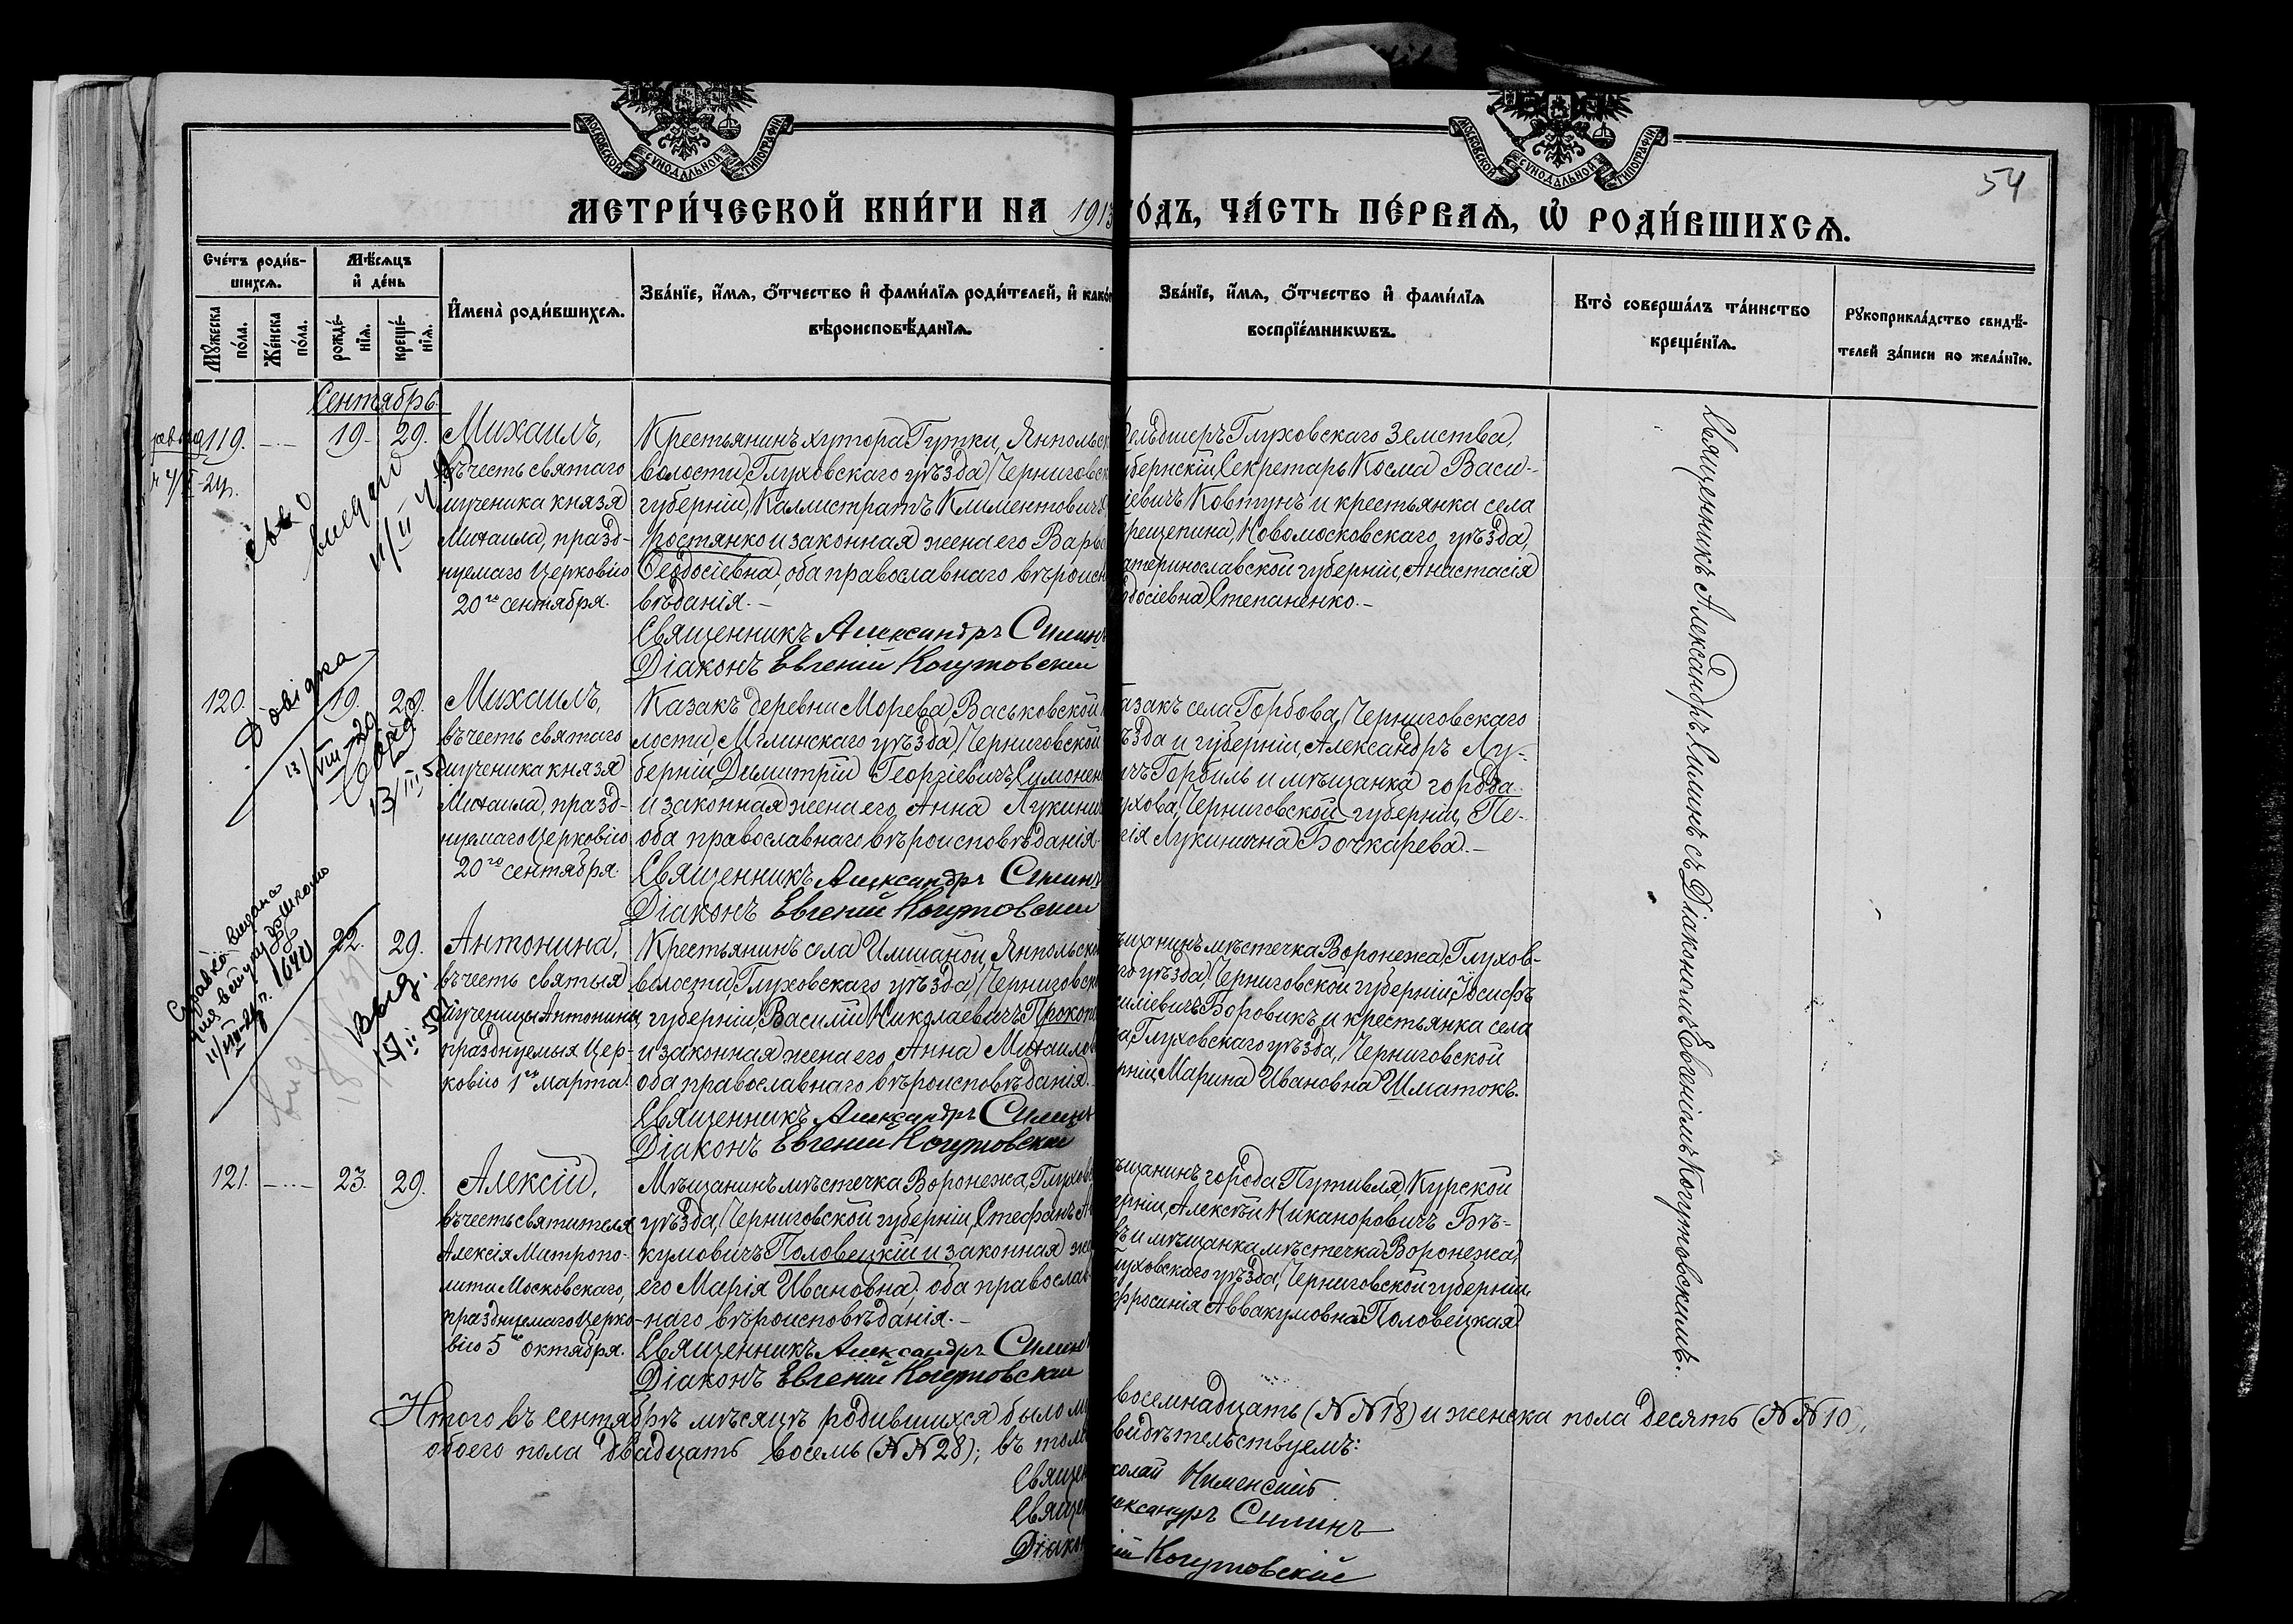 МОСКОВСКОЙ СѴНОДАЛЬНОЙ ТИПОГРАФІИ
МОСКОВСКОЙ СѴНОДАЛЬНОЙ ТИПОГРАФІИ
54
МЕТРИ́ЧЕСКОЙ КНИ́ГИ НА 1913
ГО́ДЪ, ЧА́СТЬ ПЕ́РВАѦ, Ѡ҆ РОДИ́ВШИХСѦ.
Сче́тъ роди́в-
шихсѧ.
Мѣ́сѧцъ
и҆ де́нь
Мꙋ́жеска по́ла.
Же́нска по́ла.
рожде́-нїѧ.
креще́-нїѧ.
И҆мена̀ роди́вшихсѧ.
Зва́нїе, и҆́мѧ, ѻ҆́тчество и҆ фами́лїѧ роди́телей, и҆ како́г
вѣроисповѣ́данїѧ.
Зва́нїе, и҆́мѧ, ѻ҆́тчество и҆ фами́лїѧ
воспрїе́мникѡвъ.
Кто̀ соверша́лъ та́инство
креще́нїѧ.
Рꙋкоприкла́дство свидѣ́-
телей за́писи по жела́нїю.
Сентябрь.
119. 19. 29.
Михаилъ,
въ честь святаго
мученика князя
Михаила, празд-
нуемаго Церковію
20го сентября.
Крестьянинъ хутора Гутки, Янпольск
волости, Глуховскаго уѣзда, Черниговск
губерніи, Каллистратъ Климентовичъ
Хростянко и законная жена его Варва
Ѳеодосіевна, оба православнаго вѣроисп
вѣданія.
Священникъ Александръ Силинъ
Діаконъ Евгеній Когутовскій
ельдшеръ Глуховскаго Земства,
убернскій Секретарь Косма Васи-
іевичъ Ковтунъ и крестьянка села
рещепина, Новомосковскаго уѣзда,
атеринославской губерніи, Анастасія
одосіевна Степаненко.
120. 19. 29.
Довідка
13/VIII-29
13/III 5
Михаилъ,
въ честь святаго
мученика князя
Михаила, празд-
нуемаго Церковію
20го сентября.
Казакъ деревни Морева, Васьковской
лости, Мглинскаго уѣзда, Черниговской
берніи, Димитрій Георгіевичъ Симонен
и законная жена его Анна Лукинич
оба православнаго вѣроисповѣданія.
Священникъ Александръ Силинъ
Діаконъ Евгеній Когутовскій
азакъ села Горбова, Черниговскаго
ѣзда и губерніи, Александръ Лу-
ичъ Горбиль и мѣщанка города
ухова, Черниговской губерніи, Пе-
гія Лукинична Бочкарева.
22. 29.
Справка видана
для вступу до школи
Антонина,
въ честь святыя
мученицы Антонины,
празднуемыя Цер-
ковію 1го Марта.
Крестьянинъ села Имшаной, Янпольско
волости, Глуховскаго уѣзда, Черниговско
губерніи, Василій Николаевичъ Прокоп
и законная жена его Анна Михайлов
оба православнаго вѣроисповѣданія.
Священникъ Александръ Силинъ
Діаконъ Евгеній Когутовскій
ѣщанинъ мѣстечка Воронежа, Глухов-
го уѣзда, Черниговской губерніи, Іосифъ
силіевичъ Боровикъ и крестьянка села
а, Глуховскаго уѣзда, Черниговской
рніи, Марина Ивановна Шматокъ.
121. 23. 29.
Алексій,
въ честь святителя
Алексія Митропо-
лита Московскаго,
празднуемаго Церко-
вію 5го октября.
Мѣщанинъ мѣстечка Воронежа, Глухов
уѣзда, Черниговской губерніи, Стефанъ Ав
кумовичъ Половецкій и законная же
его Марія Ивановна, оба православ
наго вѣроисповѣданія.
Священникъ Александръ Силинъ
Діаконъ Евгеній Когутовскій
ѣщанинъ города Путивля, Курской
ерніи, Алексѣй Никаноровичъ Бѣ-
въ и мѣщанка мѣстечка Воронежа,
Глуховскаго уѣзда, Черниговской губерніи,
фросинія Аввакумовна Половецкая.
Священникъ Александръ Силинъ съ Діакономъ Евгеніемъ Когутовскимъ.
Итого въ сентябрѣ мѣсяцѣ родившихся было му
восемнадцать (№№ 18) и женска пола десять (№№ 10),
обоего пола двадцать восемь (№№ 28); въ томъ
видѣтельствуемъ:
Священ
колай
Священ
лександръ Силинъ
Діакон
ій Когутовскій